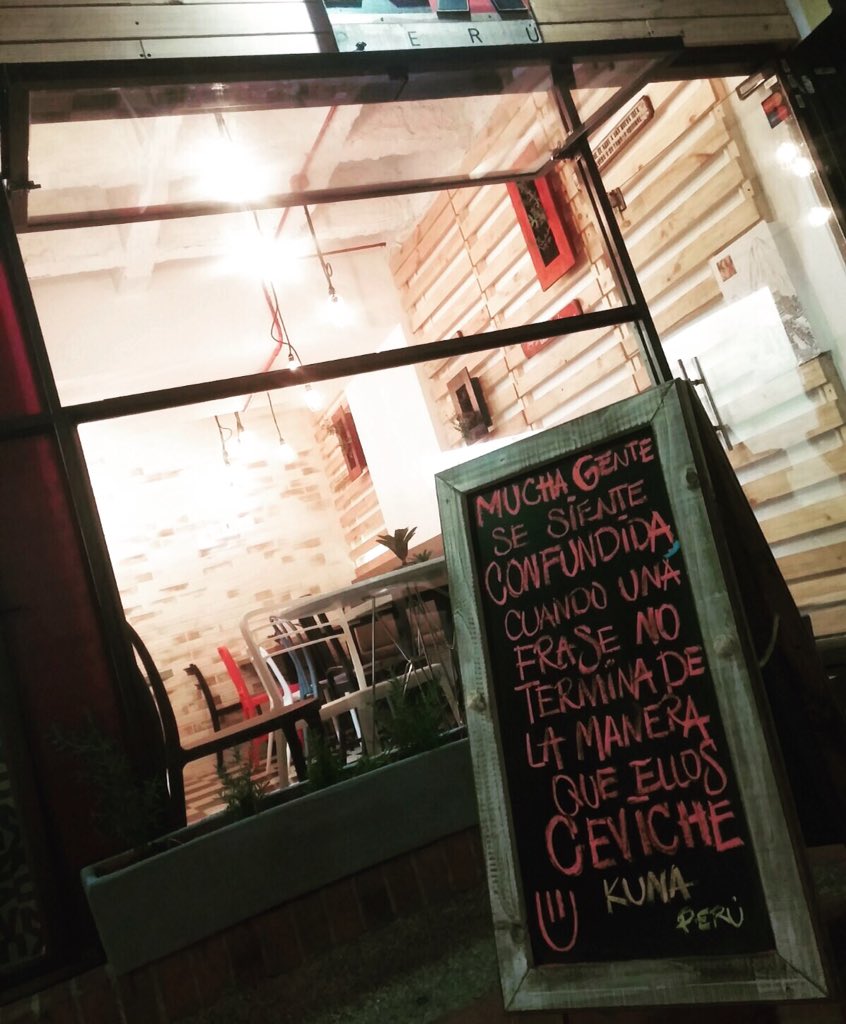 PERÚ
MUCHA GENTE
SE SIENTE
CONFUNDIDA
CUANDO UNA
FRASE NO
TERMINA DE
LA MANERA
QUE ELLOS
CEVICHE
KUNA
PERÚ